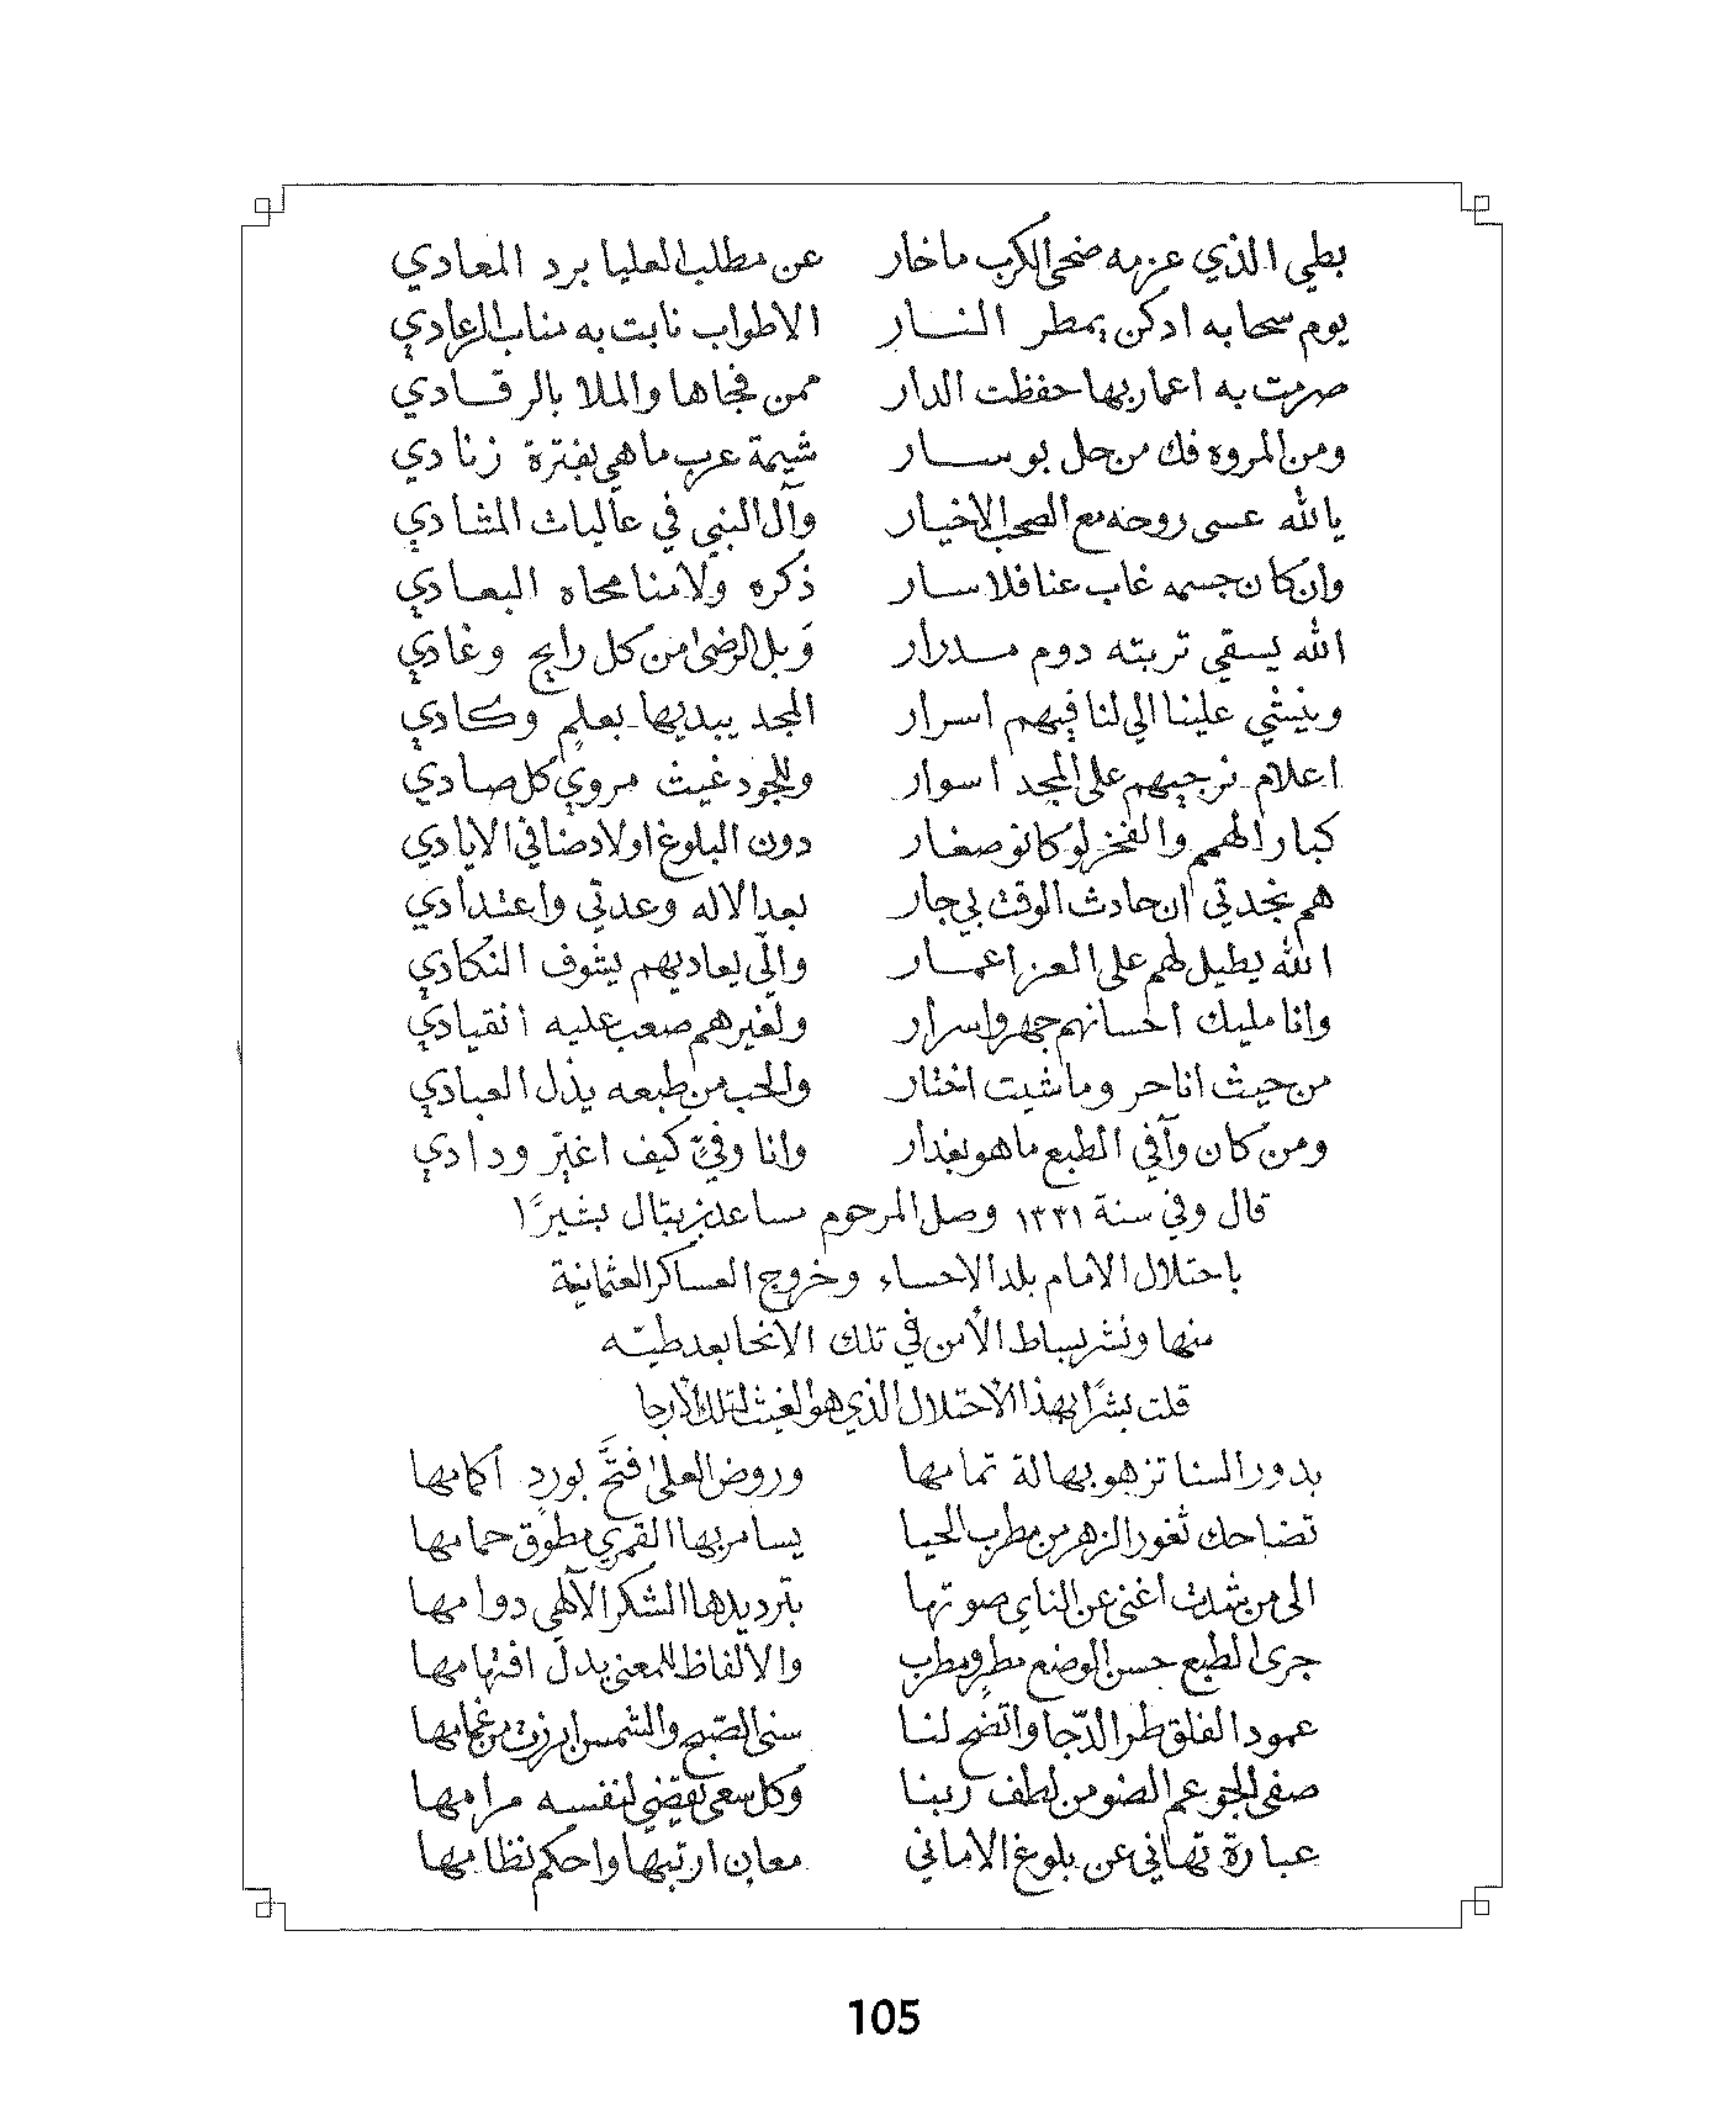 بطي الذي عزمه ضحى الكرب ماخار عن مطلب العليا يرد المعادي
يوم سحابه ادكن يمطر النار الاطواب نابت به مناب الرعادي
صرمت به اعمار بها حفظت الدار ممن فجاها والملا بالرقادي
ومن المروه فك من حل بوسار شيمة عرب ماهي بفترة زنادي
يالله عسى روحه مع الصحب الاخيار وآل النبي في عاليات المشادي
وان كان جسمه غاب عنا فلا سار ذكره ولا منا محاه البعادي
الله يسقي تربته دوم مدرار وبل الرضى من كل رايح وغادي
وينشي علينا الي لنا فيهم اسرار المجد يبديها بعلمٍ وكادي
اعلام نرجيهم على المجد اسوار وللجود غيث مروي كل صادي
كبار الهمم والفخر لو كانو صغار دون البلوغ اولاد ضافي الايادي
هم نجدتي ان حادث الوقت بي جار بعد الاله وعدتي واعتدادي
الله يطيل لهم على العز اعمار والّي يعاديهم يشوف النكادي
وانا مليك احسانهم جهر واسرار ولغيرهم صعب عليه انقيادي
من حيث انا حر وما شيت اختار والحب من طبعه يذل العبادي
ومن كان وآفي الطبع ماهو بغدار وانا وفيٍّ كيف اغيّر ودادي
قال وفي سنة ١٣٣١ وصل المرحوم مساعد بن بتال بشيرًا
باحتلال الامام بلد الاحساء وخروج العساكر العثمانية
منها ونشر بساط الأمن في تلك الانحا بعد طيّه
قلت بشرًا بهذا الاحتلال الذي هو الغيث لتلك الأرجا
بدور السنا تزهو بهالة تمامها وروض العلى فتَّح بوردٍ أكمامها
تضاحك ثغور الزهر من مطرب الحيا يسامر بها القمري مطوّق حمامها
الى من شدت أغنى عن الناي صوتها بترديدها الشكر الآلهي دوامها
جرى الطبع حسن الوضع مطرٍ ومطرب والالفاظ للمعنى يدلّ افتهامها
عمود الفلق طر الدّجا واتّضح لنا سنى الصّبح والشمس ابرزت من غمامها
صفى الجو عم الضو من لطف ربنا وكل سعى تقضي لنفسه مرامها
عبارة تهاني عن بلوغ الاماني معانٍ ارتبها واحكم نظامها
105